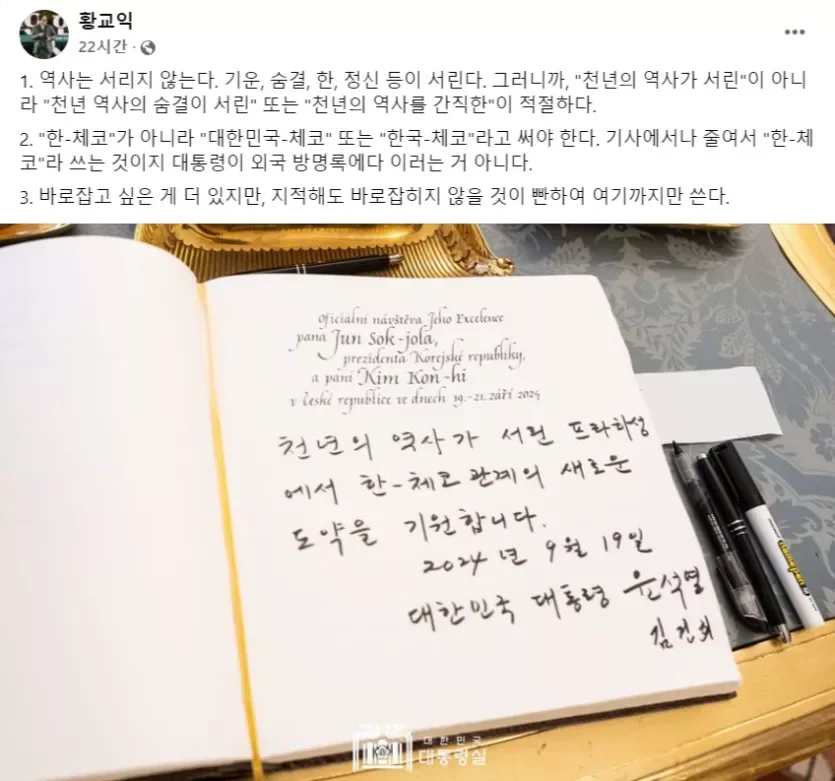 황교익
22시간 ·
1. 역사는 서리지 않는다. 기운, 숨결, 한, 정신 등이 서린다. 그러니까, "천년의 역사가 서린"이 아니
라 "천년 역사의 숨결이 서린" 또는 "천년의 역사를 간직한"이 적절하다.
2. "한-체코"가 아니라 "대한민국-체코" 또는 "한국-체코"라고 써야 한다. 기사에서나 줄여서 "한-체
코"라 쓰는 것이지 대통령이 외국 방명록에다 이러는 거 아니다.
3. 바로잡고 싶은 게 더 있지만, 지적해도 바로잡히지 않을 것이 빤하여 여기까지만 쓴다.
Oficiální návštěva Jeho Excelence
pana Jun Sok-jola,
prezidenta Korejské republiky,
a paní Kim Kon-hi
v České republice ve dnech 19.-21. září 2024
천년의 역사가 서린 프라하성
에서 한-체코 관계의 새로운
도약을 기원합니다.
2024년 9월 19일
대한민국 대통령 윤석열
김건희
namepen
대한민국
대통령실